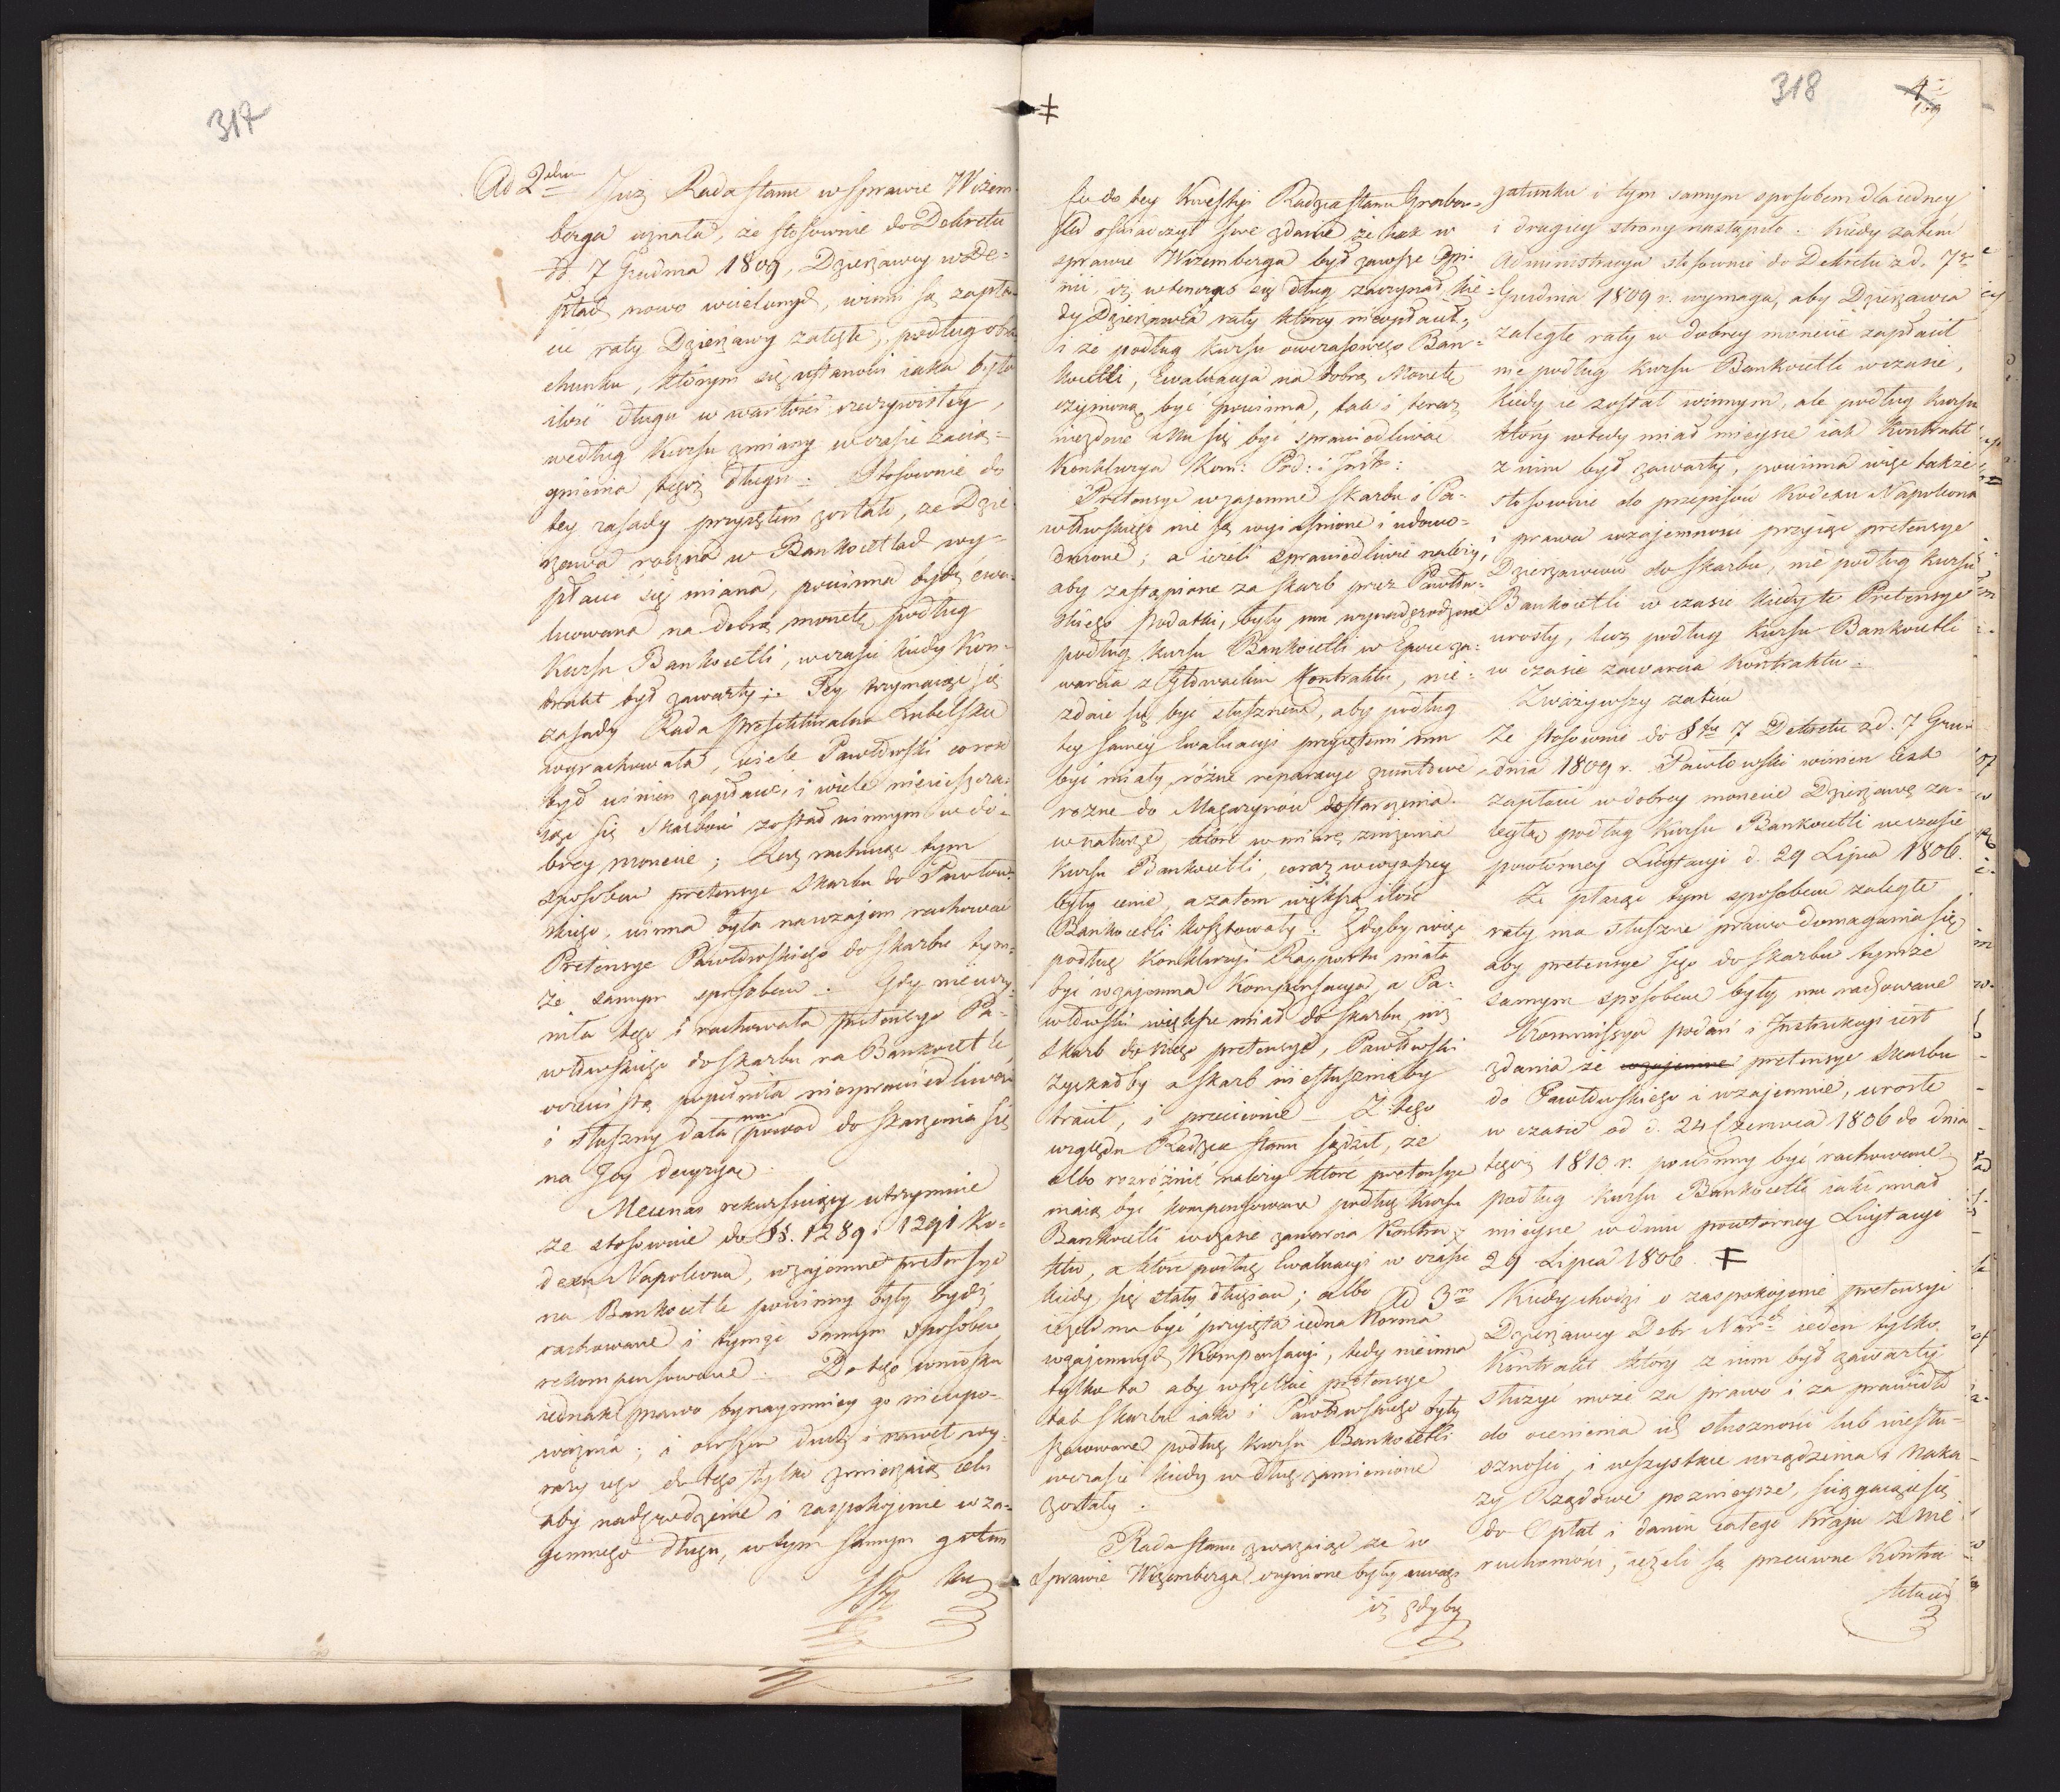 317
Ad 2dum Już Rada Stanu w sprawie Wizem-
berga uznała, że stosownie do Dekretu
z d. 7 Grudnia 1809, Dzierżawcy w De-
ptach nowo wcielonych, winni są zapła-
cić raty Dzierżawy zaległe, podług obra-
chunku, którym się ustanowi iaka była
ilość długu w wartości rzeczywistey,
według Kursu zmiany w czasie zacią-
gnienia tegoż długu. Stosownie do
tey zasady przyiętem zostało, że Dzie-
rżawa roczna w Bankocetlach wy-
płacić się miana, powinna bydź ewa-
luowana na dobrą monetę podług
Kursu Bankocetli, w czasie kiedy Kon-
trakt był zawarty. Tey trzymaiąc się
zasady Rada Prefekturalna Lubelska
wyrachowała, wiele Pawłowski corocznie
był winien zapłacić, i wiele nieuiszcza-
iąc się Skarbowi został winnym w do-
brey monecie; Lecz rachuiąc tym
sposobem pretensye Skarbu do Pawłow-
skiego, winna była nawzajem rachować
Pretensye Pawłowskiego do Skarbu tym-
że samym sposobem. Gdy nieuczy-
niła tego i rachowała pretensye Pa-
włowskiego do Skarbu na Bankocetle,
oczewistą popełniła niesprawiedliwość
i słuszny dała mu powód do skarżenia się
na Jey decyzyą.
Mecenas rekursuiący utrzymuie
że stosownie do §§. 1289 i 1291 Ko-
dexu Napoleona, wzajemne pretensye
na Bankocetle powinny były bydź
rachowane i tymże samym sposobem
rekompensowane. Do tego wniosku
iednak prawo bynaymniey go nieupo-
ważnia; i owszem duch i nawet wy-
razy iego do tego tylko zmierzaią celu
aby nadgrodzenie i zaspokoienie wza-
jemnego długu, w tym samym gatun
ku
‡
318
4
159
ku do tey Kwestyi Radca Stanu Grabow-
ski oświadczył swe zdanie że iak w
sprawie Wizemberga był zawsze opi-
nii, iż wtenczas się dług zaczynał, kie-
dy Dzierżawca raty którey niewypłacił,
i że podług kursu owczasowego Ban-
kocetli, Ewaluacya na dobrą Monetę
czynioną być powinna, tak i teraz
niezdaie Mu się być sprawiedliwą
Konkluzya Kom: Pod: i Instr:
Pretensye wzajemne Skarbu i Pa-
włowskiego nie są wyiaśnione i udowo-
dnione; a ieżeli sprawiedliwie należy,
aby zastąpione za Skarb przez Pawłow-
skiego podatki, były mu wynadgrodzone
podług kursu Bankocetli w Epoce za-
warcia z Głowackim Kontraktu, nie-
zdaie się być słusznem, aby podług
tey samey Ewaluacyi przyiętemi mu
być miały różne reparacye gruntowe,
rozne do Magazynów dostarczenia
w naturze, które w miarę zniżenia
kursu Bankocetli, coraz w wyższey
były cenie, a zatem większą ilość
Bankocetli kosztowały. Gdyby więc
podług Konkluzyi Rapportu miała
być wzajemna Kompensacya, a Pa-
włowski większe miał do Skarbu niż
Skarb do niego pretensye, Pawłowski
zyskałby a Skarb niesłusznieby
tracił, i przeciwnie. Z tego
względu Radzca Stanu sądził, że
albo rozróżnić należy które pretensye
maią być kompensowane podług Kursu
Bankocetli w czasie zawarcia Kontra-
ktu, a które podług Ewaluacyi w czasie
kiedy się stały długiem; albo
ieżeli ma być przyięta iedna Norma
wzajemnych Kompensacyi, tedy nie inna
tylko ta aby wszelkie pretensye
tak Skarbu iako i Pawłowskiego były
szacowane podług kursu Bankocetli
w czasie kiedy w dług zamienione
zostały.
Rada Stanu zważaiąc że w
Sprawie Wizemberga czynione były uwagi
iż gdyby
gatunku i tym samym sposobem dla iedney
i drugiey strony nastąpiło. Kiedy zatem
Administracya stosownie do Dekretu z d. 7go
Grudnia 1809 r. wymaga, aby Dzierżawca
zaległe raty w dobrey monecie zapłacił
nie podług kursu Bankocetli w czasie,
kiedy ie został winnym, ale podług kursu
który wtedy miał mieysce iak Kontrakt
z nim był zawarty, powinna więc także
stosownie do przepisów Kodexu Napoleona
i prawa wzajemności przyiąć pretensye
Dzierżawców do Skarbu, nie podług kursu
Bankocetli w czasie kiedy te Pretensye
urosły, lecz podług kursu Bankocetli
w czasie zawarcia kontraktu.
Zważywszy zatem
Że stosownie do §fu 7 Dekretu z d. 7 Gru-
dnia 1809 r. Pawłowski winien iest
zapłacić w dobrey monecie Dzierżawę za-
ległą podług kursu Bankocetli w czasie
powtórney Licytacyi d. 29 Lipca 1806.
Że płacąc tym sposobem zaległe
raty ma słuszne prawo domagania się
aby pretensye Jego do Skarbu tymże
samym sposobem były mu rachowane
Kommissya podań i Instrukcyi iest
zdania że wzajemne pretensye Skarbu
do Pawłowskiego i wzajemnie, urosłe
w czasie od d. 24 Czerwca 1806 do dnia
tegoż 1810 r. powinny być rachowane
podług kursu Bankocetli iaki miał
mieysce w dniu powtórney Licytacyi
29 Lipca 1806. ‡
Ad 3m Kiedy chodzi o zaspokojenie pretensyi
Dzierżawcy Dóbr Narch ieden tylko
Kontrakt który z nim był zawarty
służyć może za prawo i za prawidło
do ocenienia ich słuszności lub niesłu-
szności, i wszystkie urządzenia i Naka-
zy Rządowe poznieysze, sciągaiące się
do Opłat i danin całego Kraju z nie-
ruchomości, ieżeli są przeciwne Kontra
ktowi